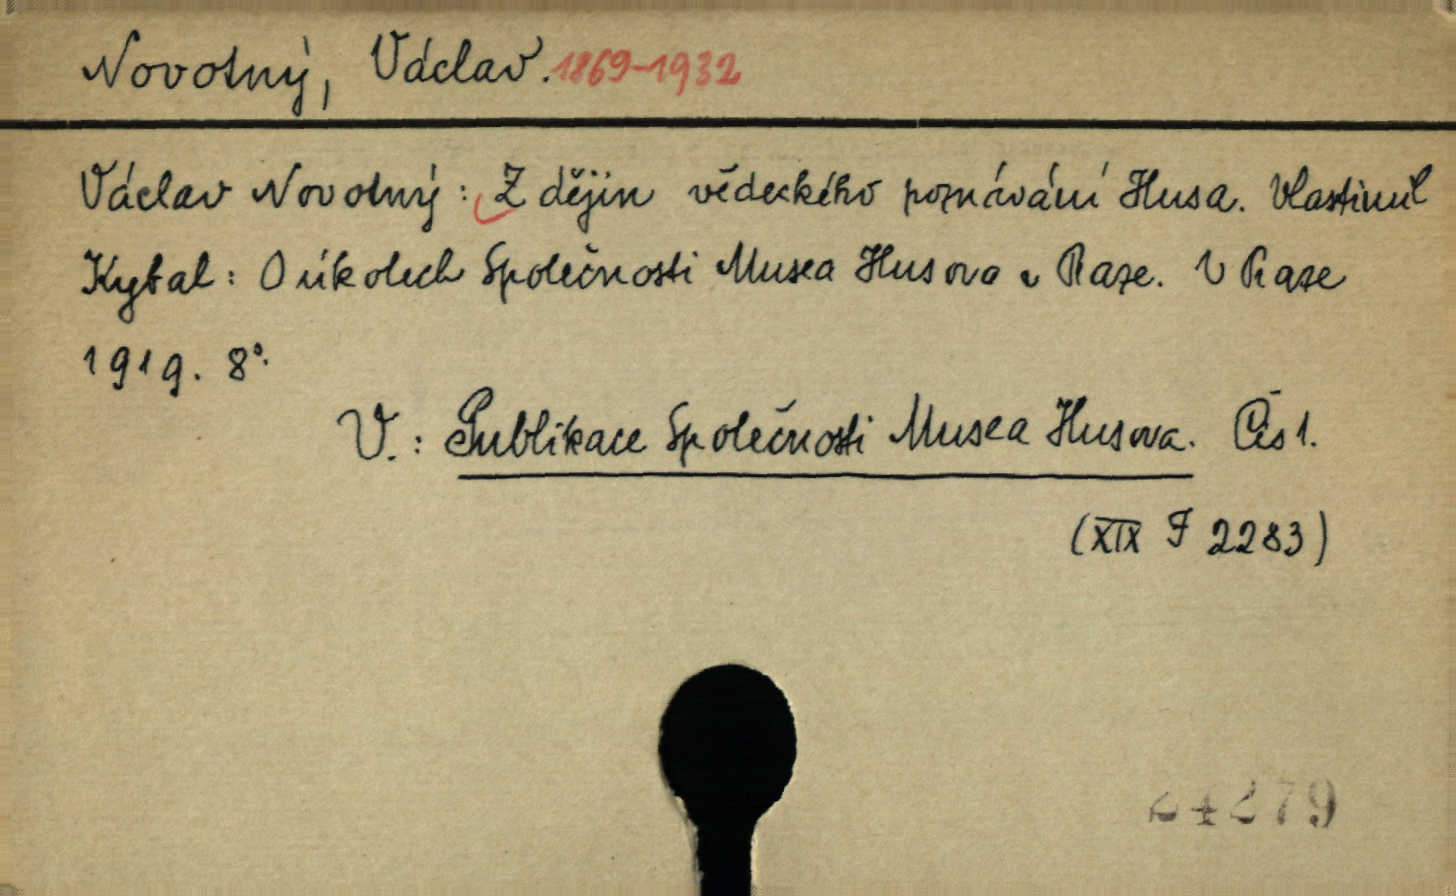 Novotný, Václav. 1869-1932
Václav Novotný: Z dějin vědeckého poznávání Husa. Vlastimil
Kybal: O úkolech Společnosti Musea Husova v Praze. V Praze
1919. 8°.
V.: Publikace Společnosti Musea Husova. Čís 1.
(XIX F 2283)
24279